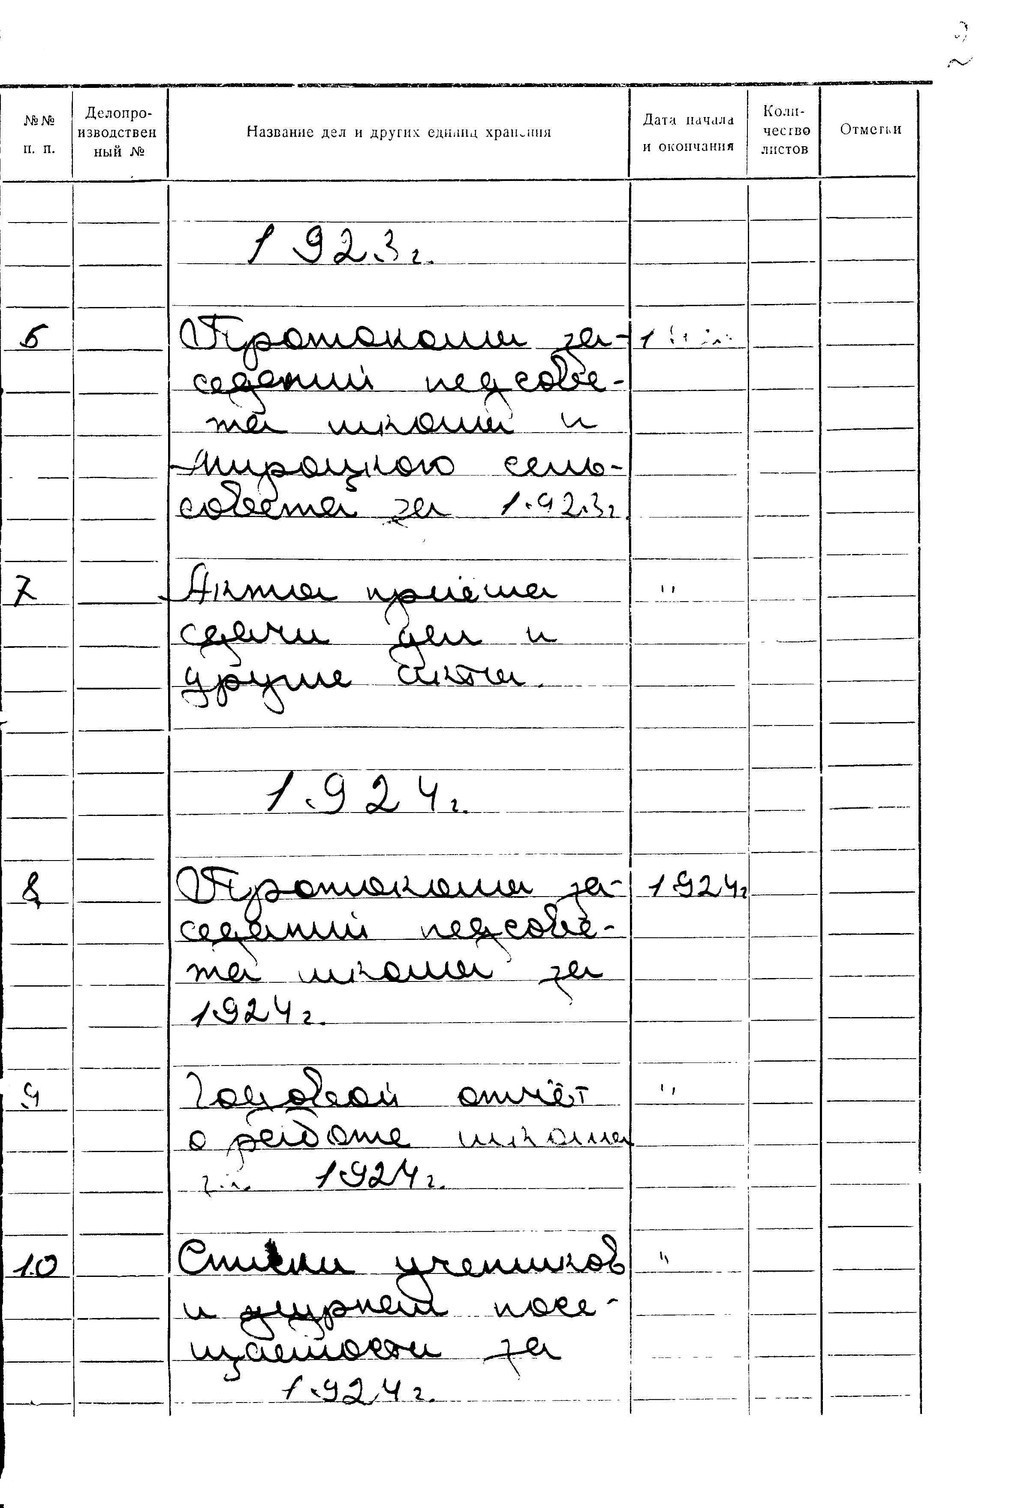 2
№№ п. п.
Делопро-
изводствен
ный №
Название дел и других единиц хранения
Дата начала
и окончания
Коли-
чество
листов
Отметки
1923г.
6 Протоколы за-
седаний педсове-
та школы и
Мироцкого сель-
совета за 1923г
7 Акты приёма "
сдачи дел и
другие акты.
1924г.
8 Протоколы за- 1924г
седаний педсове-
та школы за
1924г.
9 Годовой отчёт "
о работе школы
за 1924г.
10 Списки учеников "
и журнал посе-
щаемости за
1924г.